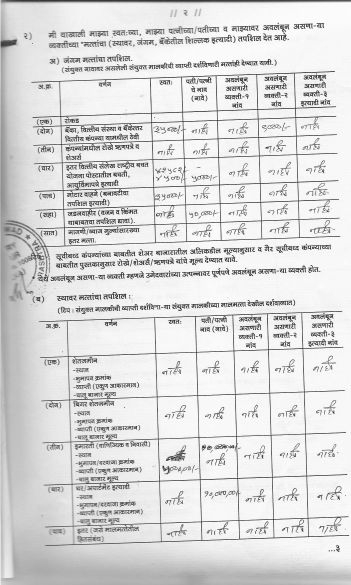 ॥ २ ॥
२) मी याखाली माझ्या स्वतःच्या, माझ्या पत्नीच्या/पतीच्या व माझ्यावर अवलंबून असणा-या
व्यक्तींच्या मत्तांचा (स्थावर, जंगम, बँकेतील शिल्लक इत्यादी) तपशिल देत आहे.
अ) जंगम मत्तांचा तपशिल.
(संयुक्त नावावर असलेली संयुक्त मालकीची व्याप्ती दर्शविणारी मत्ताही देण्यात यावी.)
अ.क्र. वर्णन स्वतः पती/पत्नीचे नाव (नावे) अवलंबून असणारी व्यक्ती-१ नांव अवलंबून असणारी व्यक्ती-२ नांव अवलंबून असणारी व्यक्ती-३ इत्यादी नांव
(एक) रोकड
(दोन) बँका, वित्तिय संस्था व बँकेतर वित्तिय कंपन्या यामधील ठेवी नाहि नाहि नाहि
(तीन) कंपन्यांमधील रोखे ऋणपत्रे व शेअर्स नाहि नाहि नाहि नाहि नाहि
(चार) इतर वित्तिय संलेख राष्ट्रीय बचत योजना पोस्टातील बचती, आयुर्विमापत्रे इत्यादी नाहि नाहि नाहि
(पाच) मोटार वाहने (बनावटीचा तपशिल इत्यादी) नाहि नाहि नाहि नाहि
(सहा) जडजवाहीर (वजन व किंमत याबाबतचा तपशिल द्यावा). नाहि ५०,०००/- नाहि नाहि नाहि
(सात) मागण्या/व्याज मूल्यांसारख्या इतर मत्ता. नाहि नाहि नाहि नाहि नाहि
सूचीबध्द कंपन्यांच्या बाबतीत शेअर बाजारातील अलिकडील मूल्यानुसार व गैर सूचीबध्द कंपन्यांच्या
बाबतीत पुस्तकानुसार रोखे/शेअर्स/ऋणपत्रे यांचे मूल्य देण्यात यावे.
येथे अवलंबून असणा-या व्यक्ती म्हणजे उमेदवारांच्या उत्पन्नावर पूर्णपणे अवलंबून असणा-या व्यक्ती होत.
(ब) स्थावर मत्तांचा तपशिल :
(टिप : संयुक्त मालकीची व्याप्ती दर्शविणा-या संयुक्त मालकीच्या मालमत्ता देखील दर्शवाव्यात)
अ.क्र. वर्णन स्वतः पती/पत्नी नाव (नावे) अवलंबून असणारी व्यक्ती-१ नांव अवलंबून असणारी व्यक्ती-२ नांव अवलंबून असणारी व्यक्ती-३ इत्यादी नांव
(एक) शेतजमीन
-स्थान
-भूमापन क्रमांक
-व्याप्ती (एकूण आकारमान)
-चालु बाजार मूल्य
नाहि नाहि नाहि नाहि नाहि
(दोन) बिगर शेतजमीन
-स्थान
-भूमापन क्रमांक
-व्याप्ती (एकूण आकारमान)
-चालु बाजार मूल्य
नाहि नाहि नाहि नाहि नाहि
(तीन) इमारती (वाणिज्यिक व निवासी)
-स्थान
-भूमापन/घरवाजा क्रमांक
-व्याप्ती (एकूण आकारमान)
-चालु बाजार मूल्य
नाहि नाहि नाहि नाहि
(चार) घर/अपार्टमेंट इत्यादी
-स्थान
-भूमापन/घरवाजा क्रमांक
-व्याप्ती (एकूण आकारमान)
-चालु बाजार मूल्य
नाहि १०,००,०००/- नाहि नाहि नाहि
(पाच) इतर (जसे मालमत्तेतील हितसंबंध) नाहि नाहि नाहि नाहि नाहि
...३